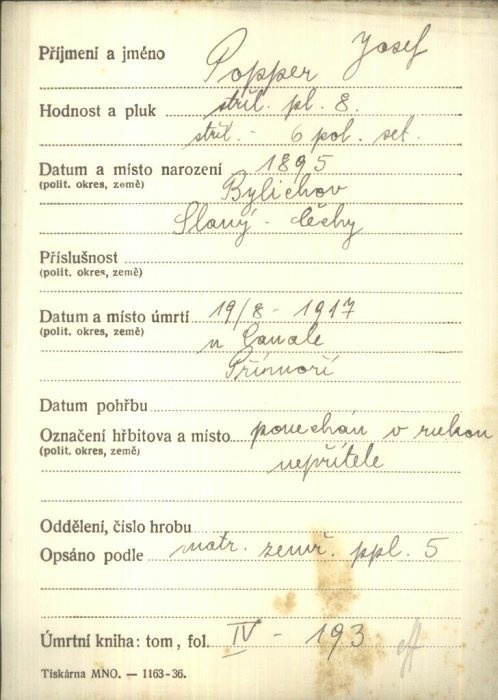 Příjmení a jméno Popper Josef
Hodnost a pluk stříl. pl. 8.
stříl. - 6 pol. set.
Datum a místo narození 1895
(polit. okres, země) Bylichov
Slaný - Čechy
Příslušnost
(polit. okres, země)
Datum a místo úmrtí 19/8 - 1917
(polit. okres, země) u Canale
Přímoří
Datum pohřbu
Označení hřbitova a místo ponechán v rukou
(polit. okres, země) nepřítele
Oddělení, číslo hrobu
Opsáno podle matr. zemř. ppl. 5
Úmrtní kniha: tom, fol. IV - 193
Tiskárna MNO. — 1163-36.